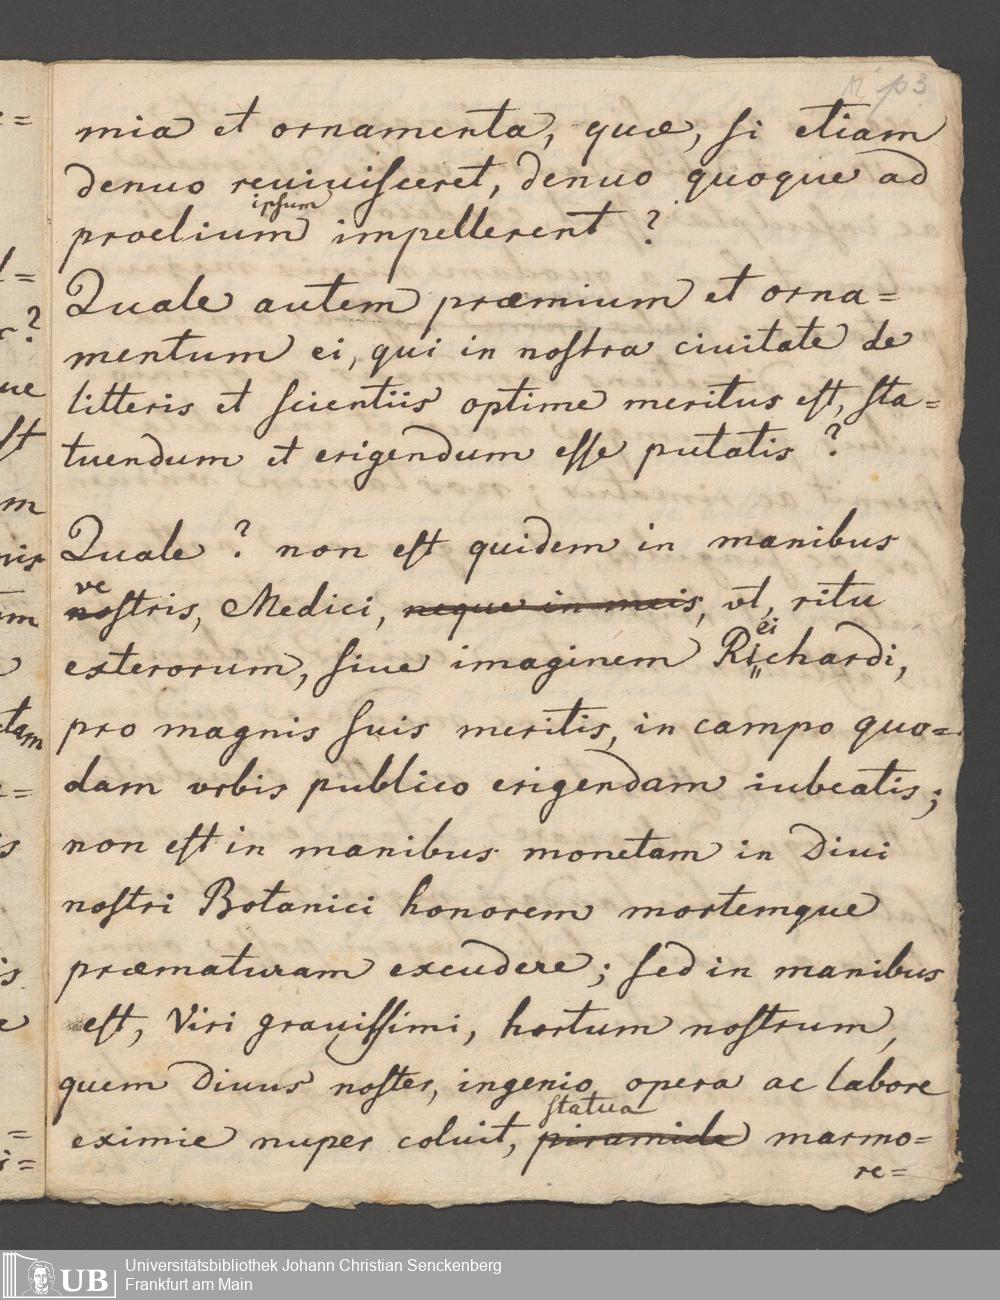 p3
mia et ornamenta, quæ, si etiam
denuo reuiuisceret, denuo quoque ad
ipsum
proelium impellerent ?
Quale autem præmium et orna=
mentum ei, qui in nostra ciuitate de
litteris et scientiis optime meritus est, sta=
tuendum et erigendum esse putatis ?
Quale ? non est quidem in manibus
ve
nostris, Medici, neque in meis, vt, ritu
ei
exterorum, siue imaginem Richardi,
pro magnis suis meritis, in campo quo=
dam vrbis publico erigendam iubeatis;
non est in manibus monetam in Diui
nostri Botanici honorem mortemque
præmaturam excudere; sed in manibus
est, Viri grauissimi, hortum nostrum,
quem Diuus noster, ingenio, opera ac labore
statua
eximie nuper coluit, piramide marmo=
re=
Universitätsbibliothek Johann Christian Senckenberg
Frankfurt am Main
UB